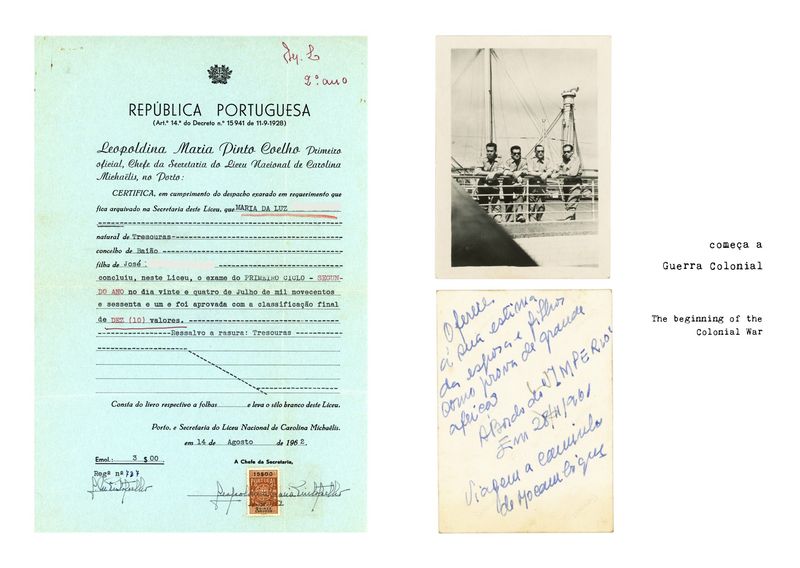 2º ano
REPÚBLICA PORTUGUESA
(Art.º 14.º do Decreto n.º 15941 de 11-9-1928)
Leopoldina Maria Pinto Coelho Primeiro
oficial, Chefe da Secretaria do Liceu Nacional de Carolina
Michaëlis, no Porto:
CERTIFICA, em cumprimento do despacho exarado em requerimento que
fica arquivado na Secretaria deste Liceu, que MARIA DA LUZ
natural de Tresouras
concelho de Baião
filha de José
concluiu, neste Liceu, o exame do PRIMEIRO CICLO - SEGUN-
DO ANO no dia vinte e quatro de Julho de mil novecentos
e sessenta e um e foi aprovada com a classificação final
de DEZ (10) valores.
Ressalvo a rasura: Tresouras
Consta do livro respectivo a folhas e leva o sêlo branco deste Liceu.
Porto, e Secretaria do Liceu Nacional de Carolina Michaëlis,
em 14 de Agosto de 1962.
Emol.: 3 $00
A Chefe da Secretaria,
Regº nº
PORTUGAL
começa a
Guerra Colonial
The beginning of the
Colonial War
Oferece
á sua estima
da esposa e filhos
como prova de grande
A Bordo do "IMPERIO"
Em 28/ /1961
Viagem a caminho
de Moçambique